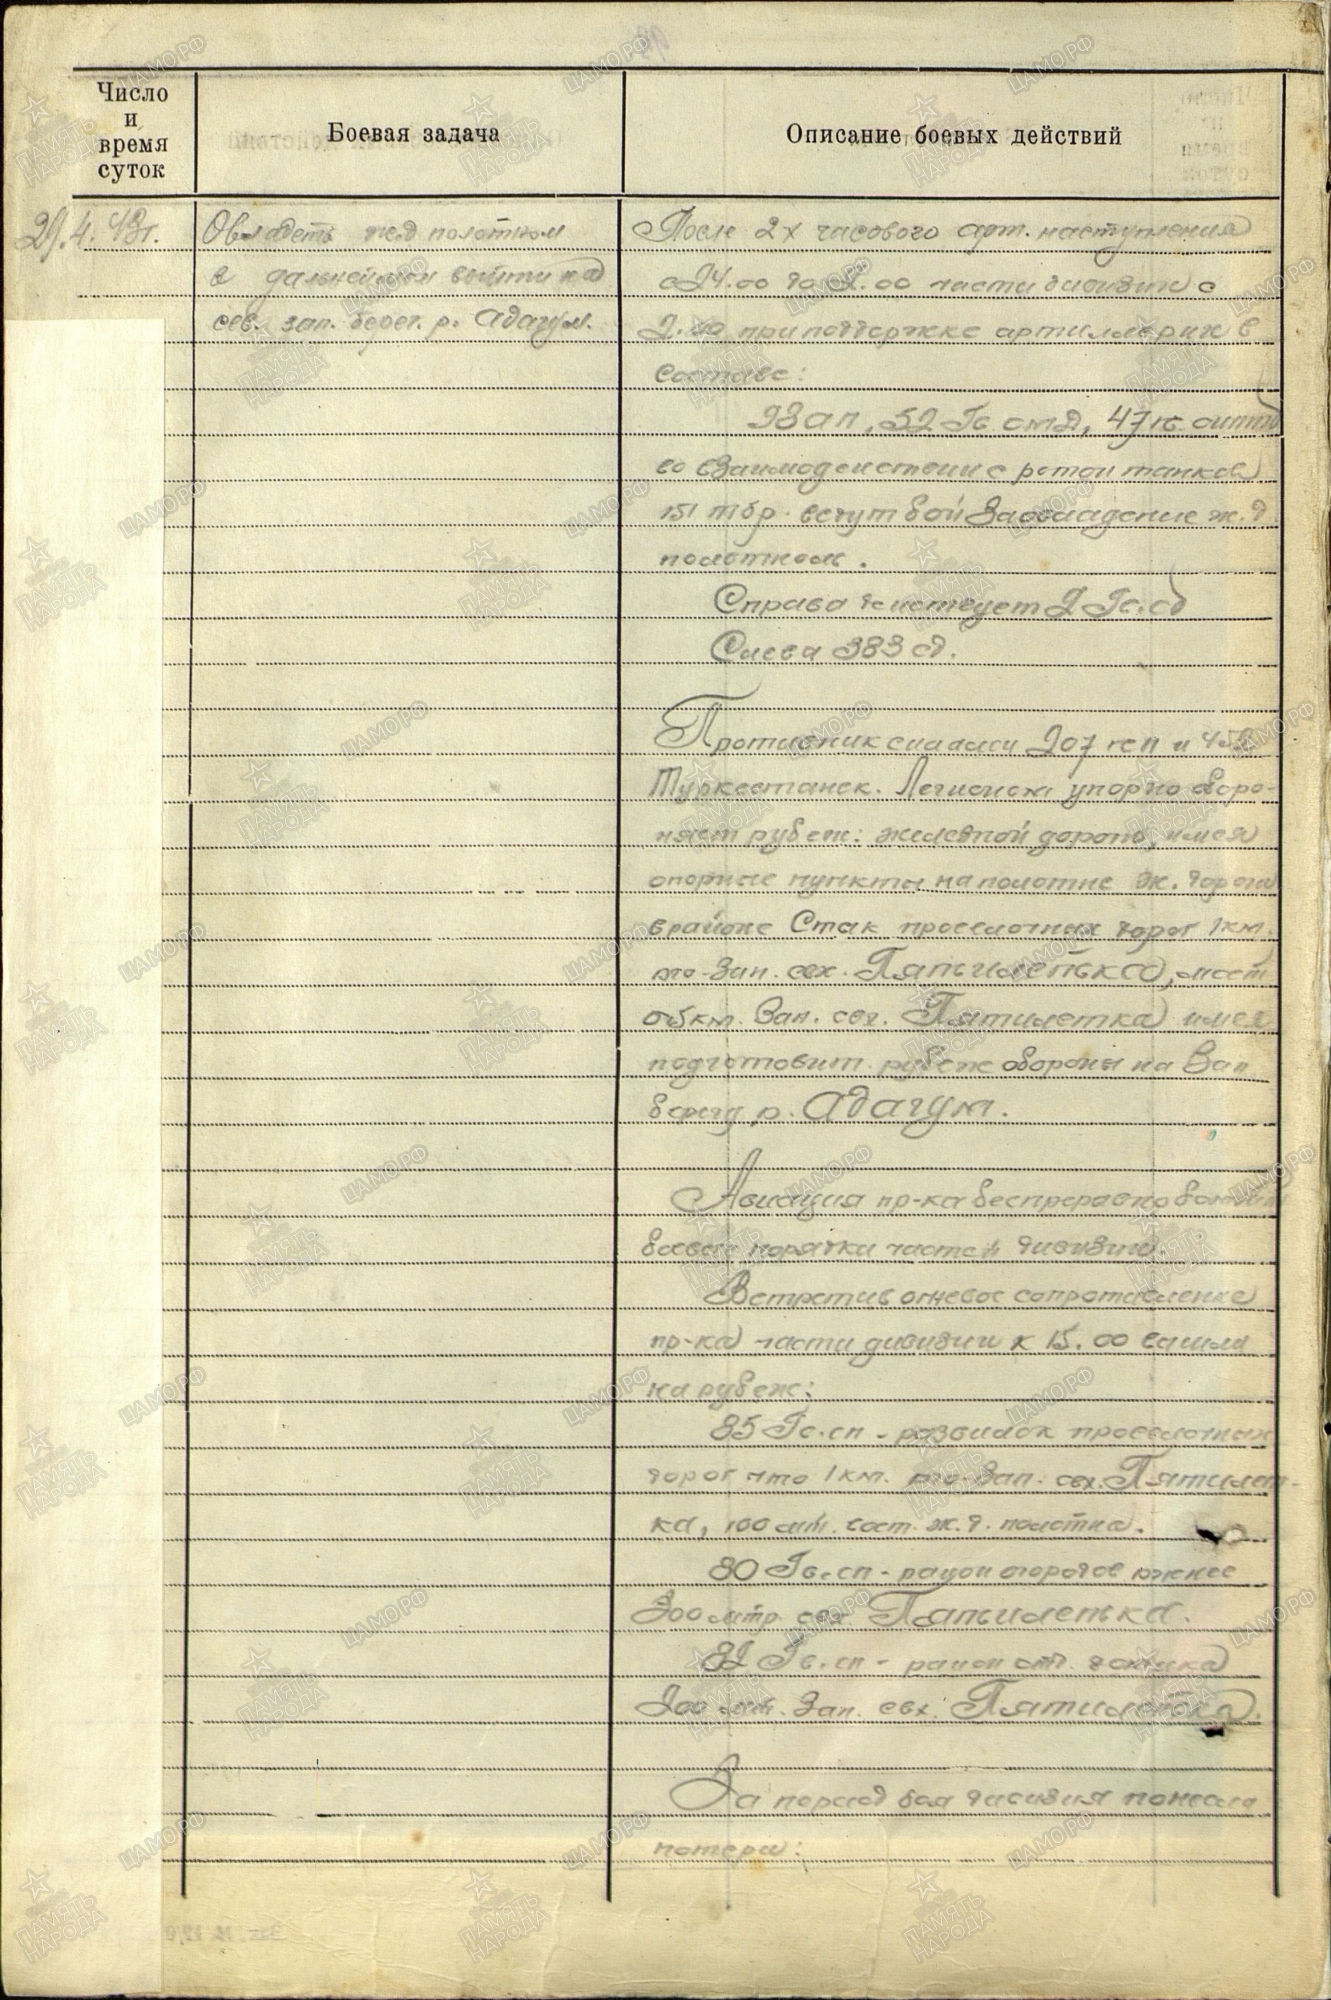 Число
и
время
суток
Боевая задача
Описание боевых действий
29.4.43г.
Овладеть жел полотном
в дальнейшем выйти на
сев. зап. берег р. Адагум.
После 2х часового арт. наступления
с 24.00 до 2.00 части дивизии с
2.00 при поддержке артиллерии в
составе:
98 ап, 52 Гв. 47
во взаимодействии с ротой танков
151 тбр. ведут бой за овладение ж. д.
полотном.
Справа действует 2 Гв. сд
Слева 383 сд.
Противник силами 207 пеп и
Туркестанск. Легиона упорно оборо-
няет рубеж: железной дороги, имея
опорные пункты на полотне ж. дороги
в районе Стык проселочных дорог 1 км.
юго-зап. свх. Пятилетка, мост
0,5 км. Зап. свх. Пятилетка имея
подготовит. рубеж обороны на Зап
берегу р. Адагум.
Авиация пр-ка беспрерывно бомбит
боевые порядки частей дивизии.
Встретив огневое сопротивление
пр-ка части дивизии к 15.00 вышли
на рубеж:
85 Гв. сп - развилок проселочных
дорог что 1 км. юго-зап. свх. Пятилет-
ка, 100 мт. вост. ж. д. полотна.
80 Гв. сп - район огородов южнее
300 мтр. свх. Пятилетка.
82 Гв. сп - район отд. домика
200 мт. Зап. свх. Пятилетка.
За период боя дивизия понесла
потери:
ЦАМО.РФ
ПАМЯТЬ
НАРОДА